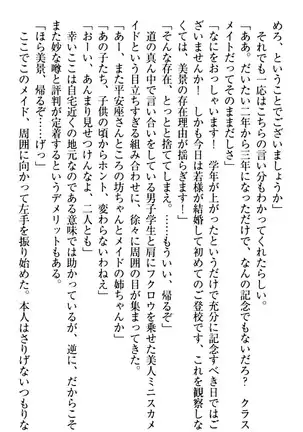 めろ、ということでございましょうか」
　それでも一応はこちらの言い分もわかってくれたらしい。
「ああ。だいたい二年から三年になっただけで、なんの記念でもないだろ？　クラス
メイトだってそのままだしさ」
「なにをおっしゃいます！　学年が上がったというだけで充分に記念すべき日ではご
ざいませんか！　しかも今日は若様が結婚して初めてのご登校です、これを観察しな
くては、美景の存在理由が揺らぎます！」
「そんな存在、とっとと捨ててしまえ。……もういい、帰るぞ」
　道の真ん中で言い合いをしている男子学生と肩にフクロウを乗せた美人ミニスカメ
イドという目立ちすぎる組み合わせに、徐々に周囲の目が集まってきた。
「あー、また平安座さんところの坊ちゃんとメイドの姉ちゃんか」
「あの子たち、子供の頃からホント、変わらないわねえ」
「おーい、あんまり見せつけんなよ、二人とも」
　幸いここは自宅近くの地元なのである意味では助かっているが、逆に、だからこそ
また妙な噂と評判が定着するというデメリットもある。
「ほら美景、帰るぞ……げっ」
　ここでこのメイド、周囲に向かって左手を振り始めた。本人はさりげないつもりな